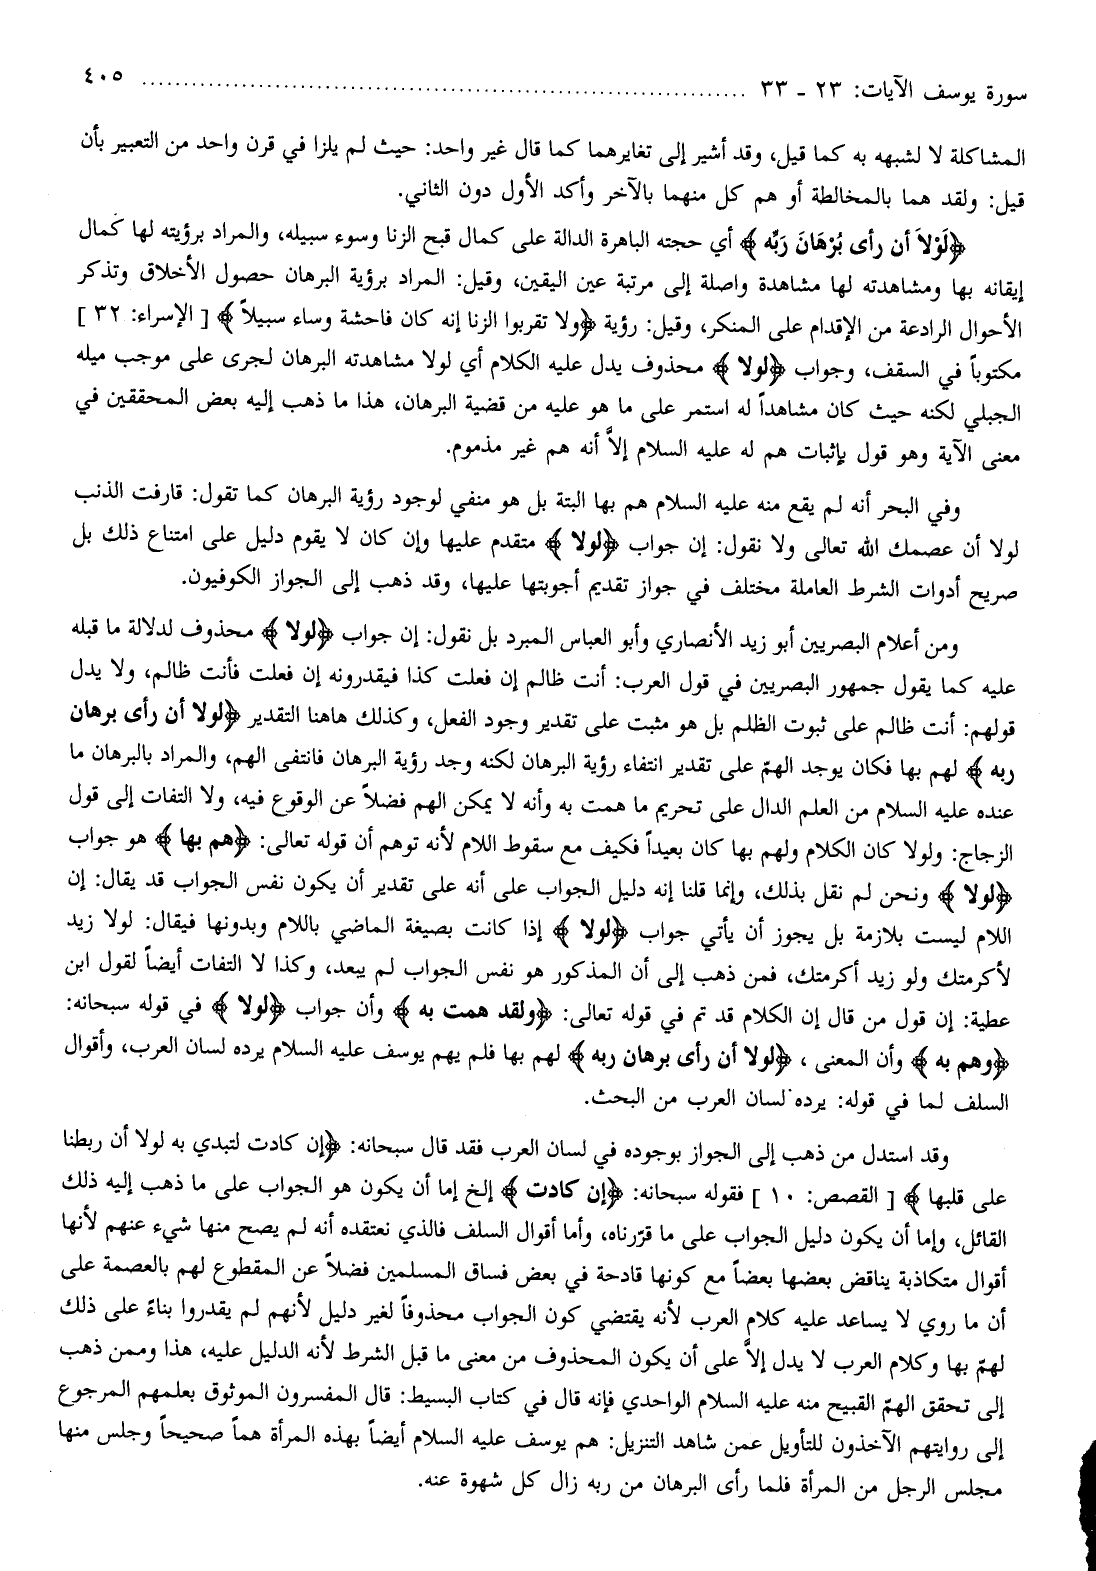 سورة يوسف الآيات: ٢٣ - ٣٣ ........................................ ٤٠٥
المشاكلة لا لشبهه به كما قيل، وقد أشير إلى تغايرهما كما قال غير واحد: حيث لم يلزا في قرن واحد من التعبير بأن
قيل: ولقد هما بالمخالطة أو هم كل منهما بالآخر وأكد الأول دون الثاني.
﴿لَوْلاَ أن رأى بُرْهَانَ رَبِّه﴾ أي حجته الباهرة الدالة على كمال قبح الزنا وسوء سبيله، والمراد برؤيته لها كمال
إيقانه بها ومشاهدته لها مشاهدة واصلة إلى مرتبة عين اليقين، وقيل: المراد برؤية البرهان حصول الأخلاق وتذكر
الأحوال الرادعة من الإقدام على المنكر، وقيل: رؤية ﴿ولا تقربوا الزنا إنه كان فاحشة وساء سبيلاً﴾ [ الإسراء: ٣٢ ]
مكتوباً في السقف، وجواب ﴿لولا﴾ محذوف يدل عليه الكلام أي لولا مشاهدته البرهان لجرى على موجب ميله
الجبلي لكنه حيث كان مشاهداً له استمر على ما هو عليه من قضية البرهان، هذا ما ذهب إليه بعض المحققين في
معنى الآية وهو قول بإثبات هم له عليه السلام إلاَّ أنه هم غير مذموم.
وفي البحر أنه لم يقع منه عليه السلام هم بها البتة بل هو منفي لوجود رؤية البرهان كما تقول: قارفت الذنب
لولا أن عصمك الله تعالى ولا نقول: إن جواب ﴿لولا﴾ متقدم عليها وإن كان لا يقوم دليل على امتناع ذلك بل
صريح أدوات الشرط العاملة مختلف في جواز تقديم أجوبتها عليها، وقد ذهب إلى الجواز الكوفيون.
ومن أعلام البصريين أبو زيد الأنصاري وأبو العباس المبرد بل نقول: إن جواب ﴿لولا﴾ محذوف لدلالة ما قبله
عليه كما يقول جمهور البصريين في قول العرب: أنت ظالم إن فعلت كذا فيقدرونه إن فعلت فأنت ظالم، ولا يدل
قولهم: أنت ظالم على ثبوت الظلم بل هو مثبت على تقدير وجود الفعل، وكذلك هاهنا التقدير ﴿لولا أن رأى برهان
ربه﴾ لهم بها فكان يوجد الهمّ على تقدير انتفاء رؤية البرهان لكنه وجد رؤية البرهان فانتفى الهم، والمراد بالبرهان ما
عنده عليه السلام من العلم الدال على تحريم ما همت به وأنه لا يمكن الهم فضلاً عن الوقوع فيه، ولا التفات إلى قول
الزجاج: ولولا كان الكلام ولهم بها كان بعيداً فكيف مع سقوط اللام لأنه توهم أن قوله تعالى: ﴿هم بها﴾ هو جواب
﴿لولا﴾ ونحن لم نقل بذلك، وإنما قلنا إنه دليل الجواب على أنه على تقدير أن يكون نفس الجواب قد يقال: إن
اللام ليست بلازمة بل يجوز أن يأتي جواب ﴿لولا﴾ إذا كانت بصيغة الماضي باللام وبدونها فيقال: لولا زيد
لأكرمتك ولو زيد أكرمتك، فمن ذهب إلى أن المذكور هو نفس الجواب لم يبعد، وكذا لا التفات أيضاً لقول ابن
عطية: إن قول من قال إن الكلام قد تم في قوله تعالى: ﴿ولقد همت به﴾ وأن جواب ﴿لولا﴾ في قوله سبحانه:
﴿وهم به﴾ وأن المعنى ، ﴿لولا أن رأى برهان ربه﴾ لهم بها فلم يهم يوسف عليه السلام يرده لسان العرب، وأقوال
السلف لما في قوله: يرده لسان العرب من البحث.
وقد استدل من ذهب إلى الجواز بوجوده في لسان العرب فقد قال سبحانه: ﴿إن كادت لتبدي به لولا أن ربطنا
على قلبها﴾ [ القصص: ١٠ ] فقوله سبحانه: ﴿إن كادت﴾ إلخ إما أن يكون هو الجواب على ما ذهب إليه ذلك
القائل، وإما أن يكون دليل الجواب على ما قرّرناه، وأما أقوال السلف فالذي نعتقده أنه لم يصح منها شيء عنهم لأنها
أقوال متكاذبة يناقض بعضها بعضاً مع كونها قادحة في بعض فساق المسلمين فضلاً عن المقطوع لهم بالعصمة على
أن ما روي لا يساعد عليه كلام العرب لأنه يقتضي كون الجواب محذوفاً لغير دليل لأنهم لم يقدروا بناءً على ذلك
لهمّ بها وكلام العرب لا يدل إلاَّ على أن يكون المحذوف من معنى ما قبل الشرط لأنه الدليل عليه، هذا وممن ذهب
إلى تحقق الهمّ القبيح منه عليه السلام الواحدي فإنه قال في كتاب البسيط: قال المفسرون الموثوق بعلمهم المرجوع
إلى روايتهم الآخذون للتأويل عمن شاهد التنزيل: هم يوسف عليه السلام أيضاً بهذه المرأة هماً صحيحاً وجلس منها
مجلس الرجل من المرأة فلما رأى البرهان من ربه زال كل شهوة عنه.